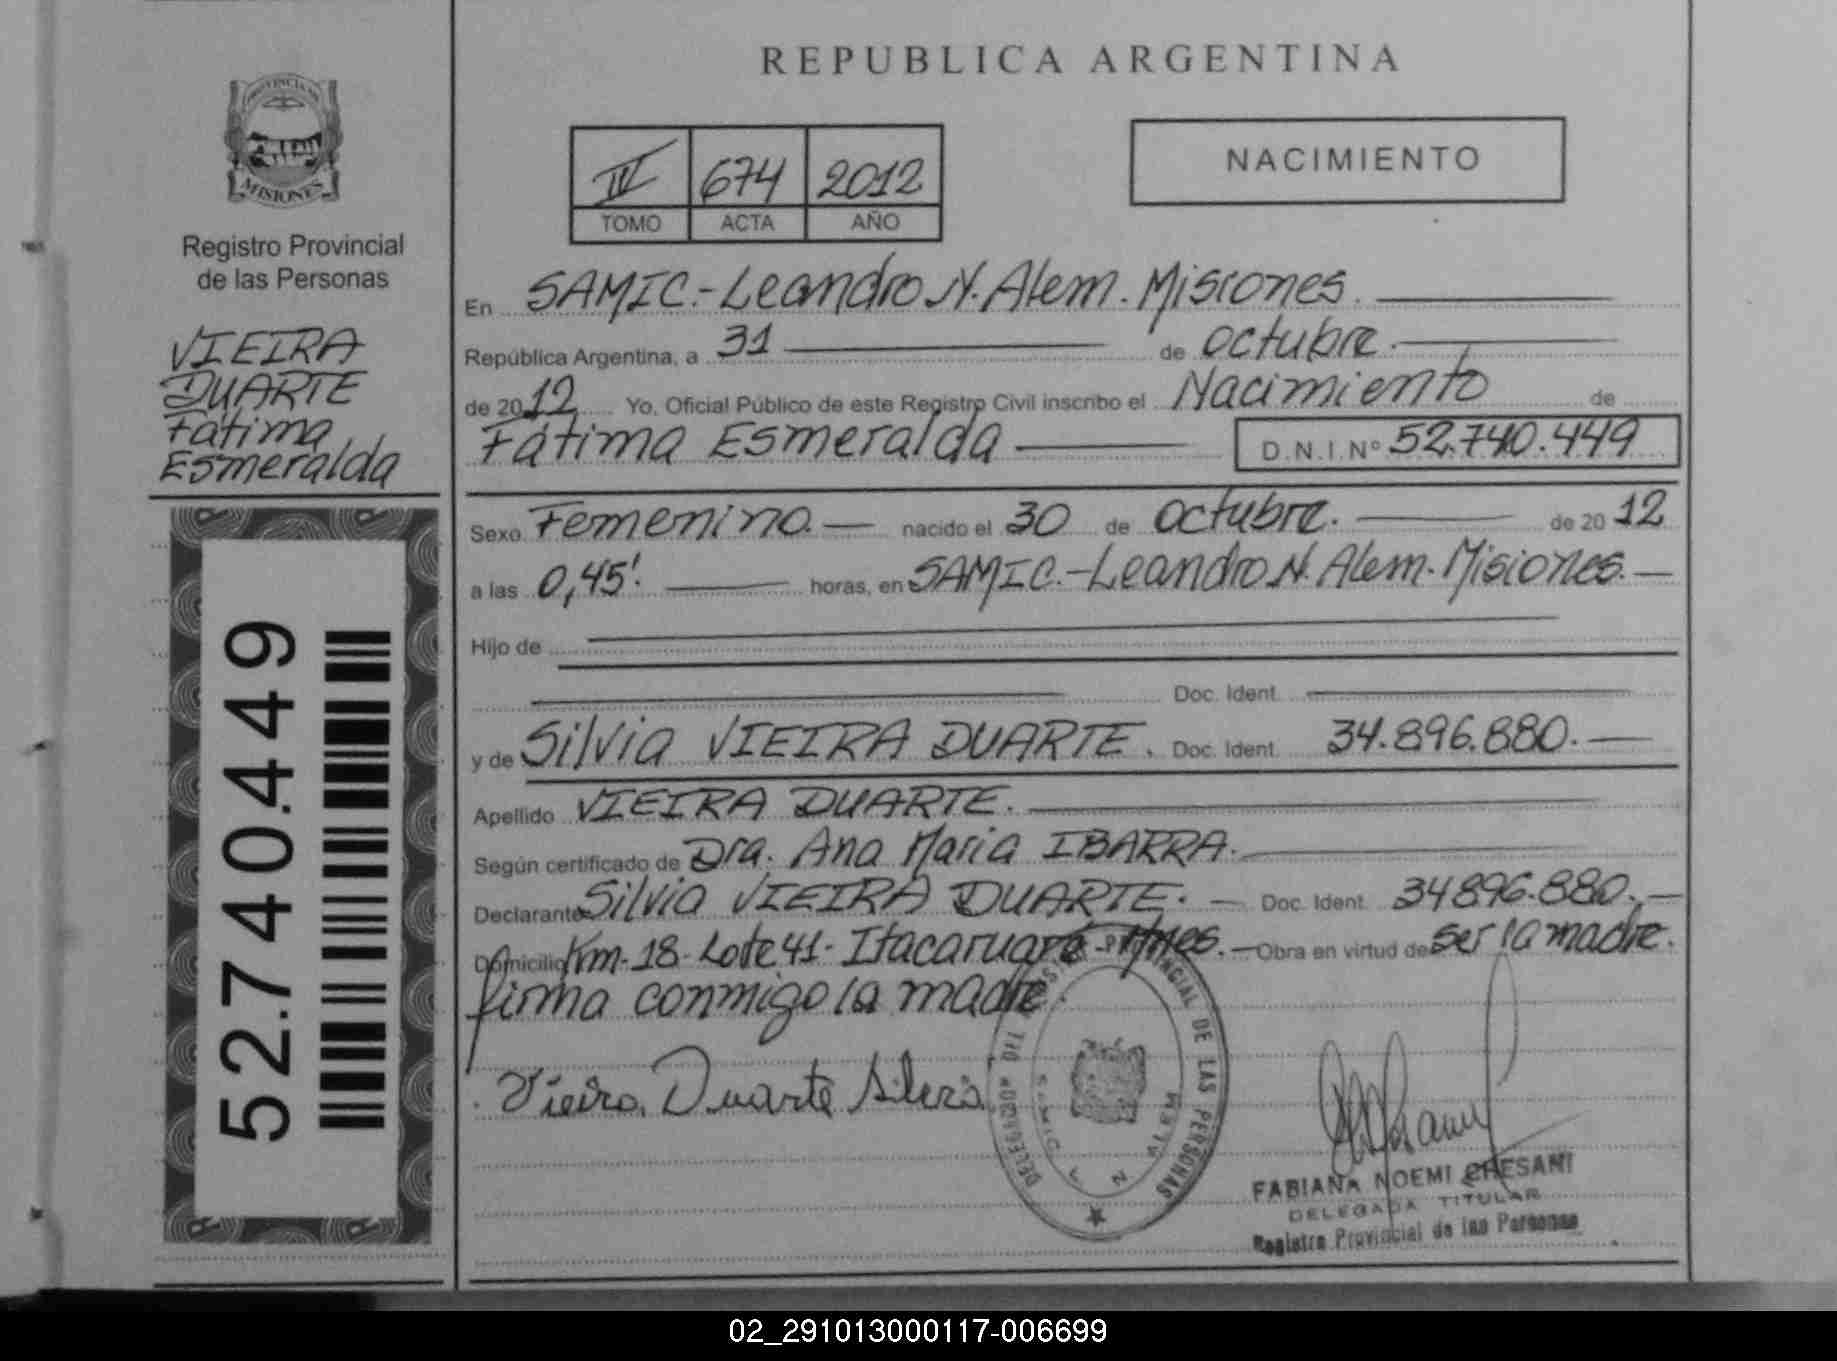 REPUBLICA ARGENTINA
PROVINCIA DE
MISIONES
Registro Provincial
de las Personas
VIEIRA
DUARTE
Fátima
Esmeralda
52.740.449
IV 674 2012
TOMO ACTA AÑO
NACIMIENTO
En SAMIC.-Leandro N. Alem. Misiones.
República Argentina, a 31 de octubre.
de 2012 Yo, Oficial Público de este Registro Civil inscribo el Nacimiento de
Fátima Esmeralda D.N.I.Nº 52.740.449
Sexo Femenino.- nacido el 30 de octubre. de 2012
a las 0,45'. horas, en SAMIC.-Leandro N. Alem. Misiones.-
Hijo de
Doc. Ident.
y de Silvia VIEIRA DUARTE. Doc. Ident. 34.896.880.-
Apellido VIEIRA DUARTE.
Según certificado de Dra. Ana Maria IBARRA.
Declarante Silvia VIEIRA DUARTE.- Doc. Ident. 34896.880.-
Domicilio Km-18-Lote 41-Itacaruaré-Mnes.- Obra en virtud de ser la madre.
firma conmigo la madre.
Vieira Duarte
DELEGACION DEL REGISTRO PROVINCIAL DE LAS PERSONAS
SAMIC L N ALEM
FABIANA NOEMI CHESANI
DELEGADA TITULAR
Registro Provincial de las Personas
02_291013000117-006699